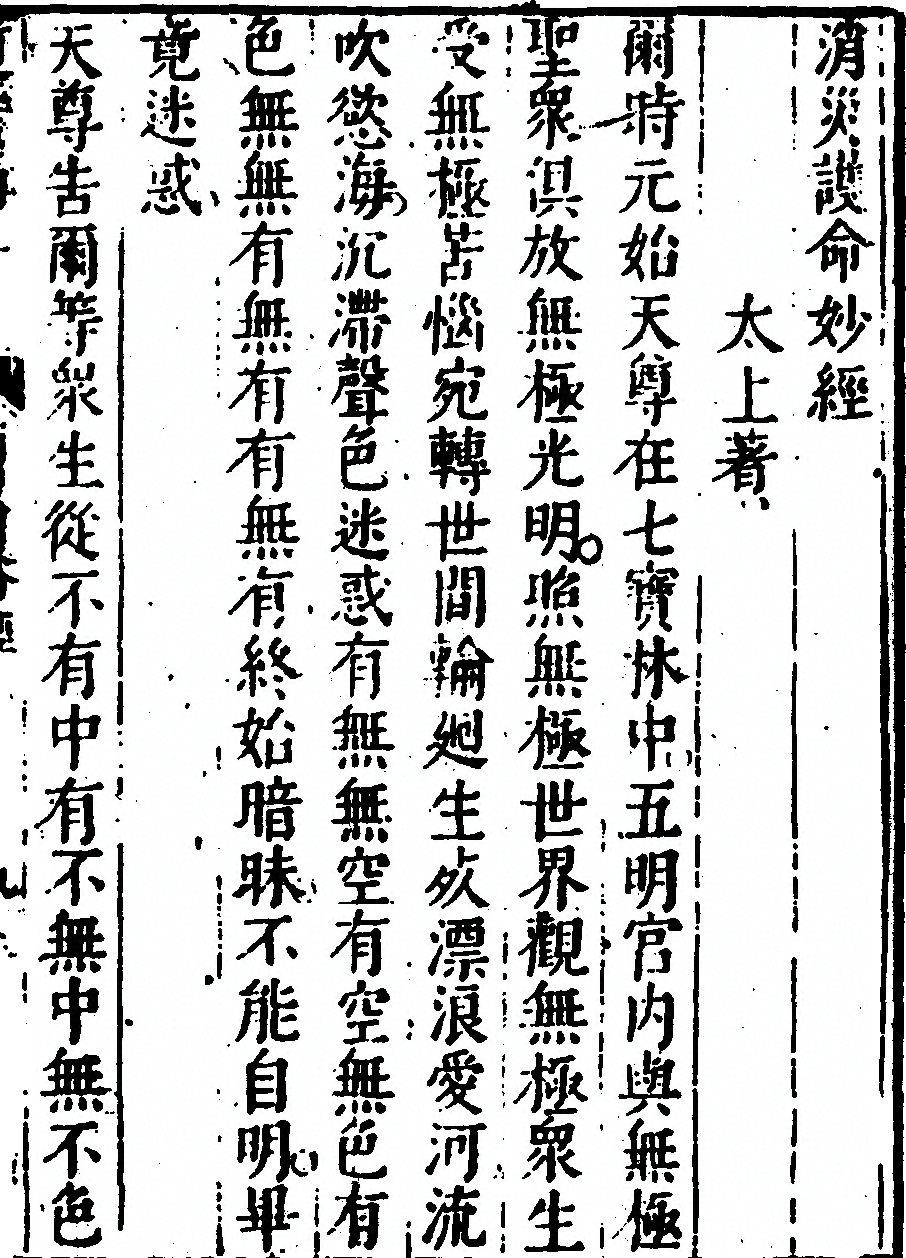 消災護命妙經
太上著
爾時元始天尊在七寶林中五明宫内與無極
聖衆俱放無極光明照無極世界觀無極衆生
受無極苦惱宛轉世間輪廻生死漂浪愛河流
吹慾海沉滯聲色迷惑有無無空有空無色有
色無無有無有有無有終始暗昧不能自明畢
竟迷惑
天尊告爾等衆生從不有中有不無中無不色